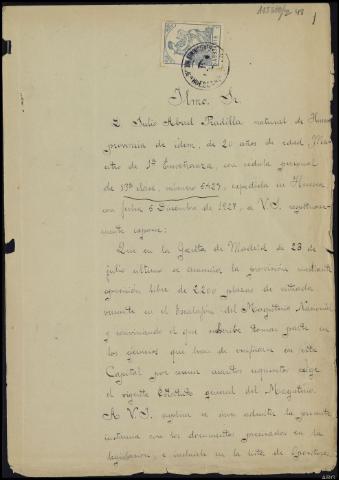 Ilmo. Sr.
D. Julio Abad Pradilla natural de Huesca
provincia de idem, de 20 años de edad, Maes-
tro de 1ª Enseñanza, con cédula personal
de clase, número 5423, expedida en Huesca
con fecha 6 Diciembre de 1927, a V.S. respetuosa-
mente expone:
Que en la Gaceta de Madrid de 23 de
julio último se anuncia la provisión mediante
oposición libre de 2.200 plazas de entrada
vacante en el Escalafón del Magisterio Nacional
y conviniendo al que suscribe tomar parte
en los que han de verificarse en esta
Capital por reunir cuantos requisitos exige
el vigente Estatuto general del Magisterio.
A V.S. suplica se sirva admitir la presente
instancia con los documentos precisados en la
legislación, e incluirle en la lista de Opositores